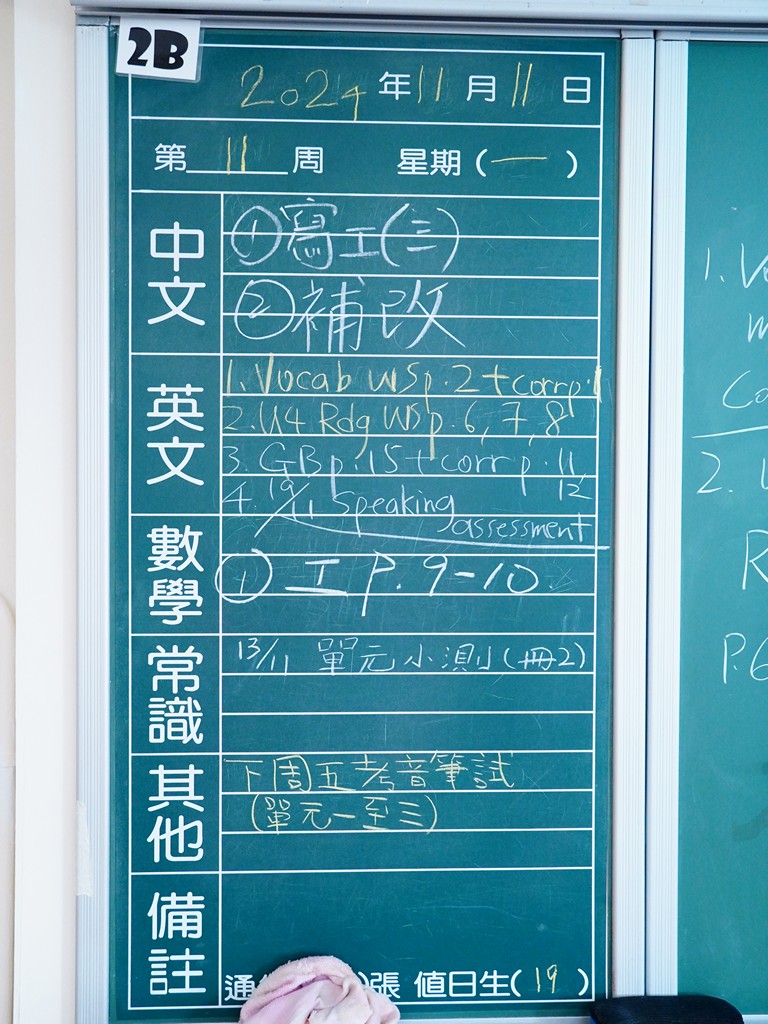 2B
2024年11月11日
第 11 周 星期(一)
中文
①寫工(三)
②補改
英文
1. Vocab WS p. 2 + corr p. 1
2. U4 Rdg WS p. 6, 7, 8
3. GB p. 15 + corr p. 11, 12
4. 19/11 Speaking assessment
數學
① 工 P. 9-10
常識
13/11 單元小測(冊2)
其他
下周五考音筆試
(單元一至三)
備註
通 )張 值日生(19)
1. V
2.
P. 6